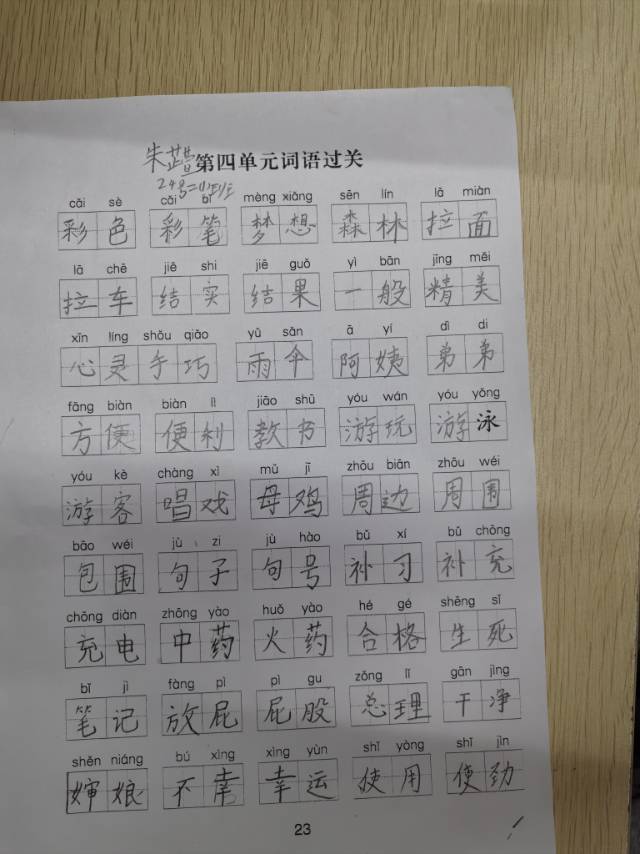 朱芷
第四单元词语过关
24号
cǎi sè cǎi bǐ mèng xiǎng sēn lín lā miàn
彩色 彩笔 梦想 森林 拉面
lā chē jiē shi jiē guǒ yì bān jīng měi
拉车 结实 结果 一般 精美
xīn líng shǒu qiǎo yǔ sǎn ā yí dì di
心灵手巧 雨伞 阿姨 弟弟
fāng biàn biàn lì jiāo shū yóu wán yóu yǒng
方便 便利 教书 游玩 游泳
yóu kè chàng xì mǔ jī zhōu biān zhōu wéi
游客 唱戏 母鸡 周边 周围
bāo wéi jù zi jù hào bǔ xí bǔ chōng
包围 句子 句号 补习 补充
chōng diàn zhōng yào huǒ yào hé gé shēng sǐ
充电 中药 火药 合格 生死
bǐ jì fàng pì pì gu zǒng lǐ gān jìng
笔记 放屁 屁股 总理 干净
shěn niáng bú xìng xìng yùn shǐ yòng shǐ jìn
婶娘 不幸 幸运 使用 使劲
23